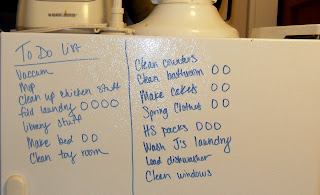 To Do List
Vaccum
Mop
Clean up chicken stuff
fold laundry O O O O
library stuff
Make bed O O
Clean toy room
Clean counters
Clean bathroom O O
Make cakes O O
Spring Clothes O O
HS packs O O O
Wash J's laundry
Load dishwasher
Clean windows